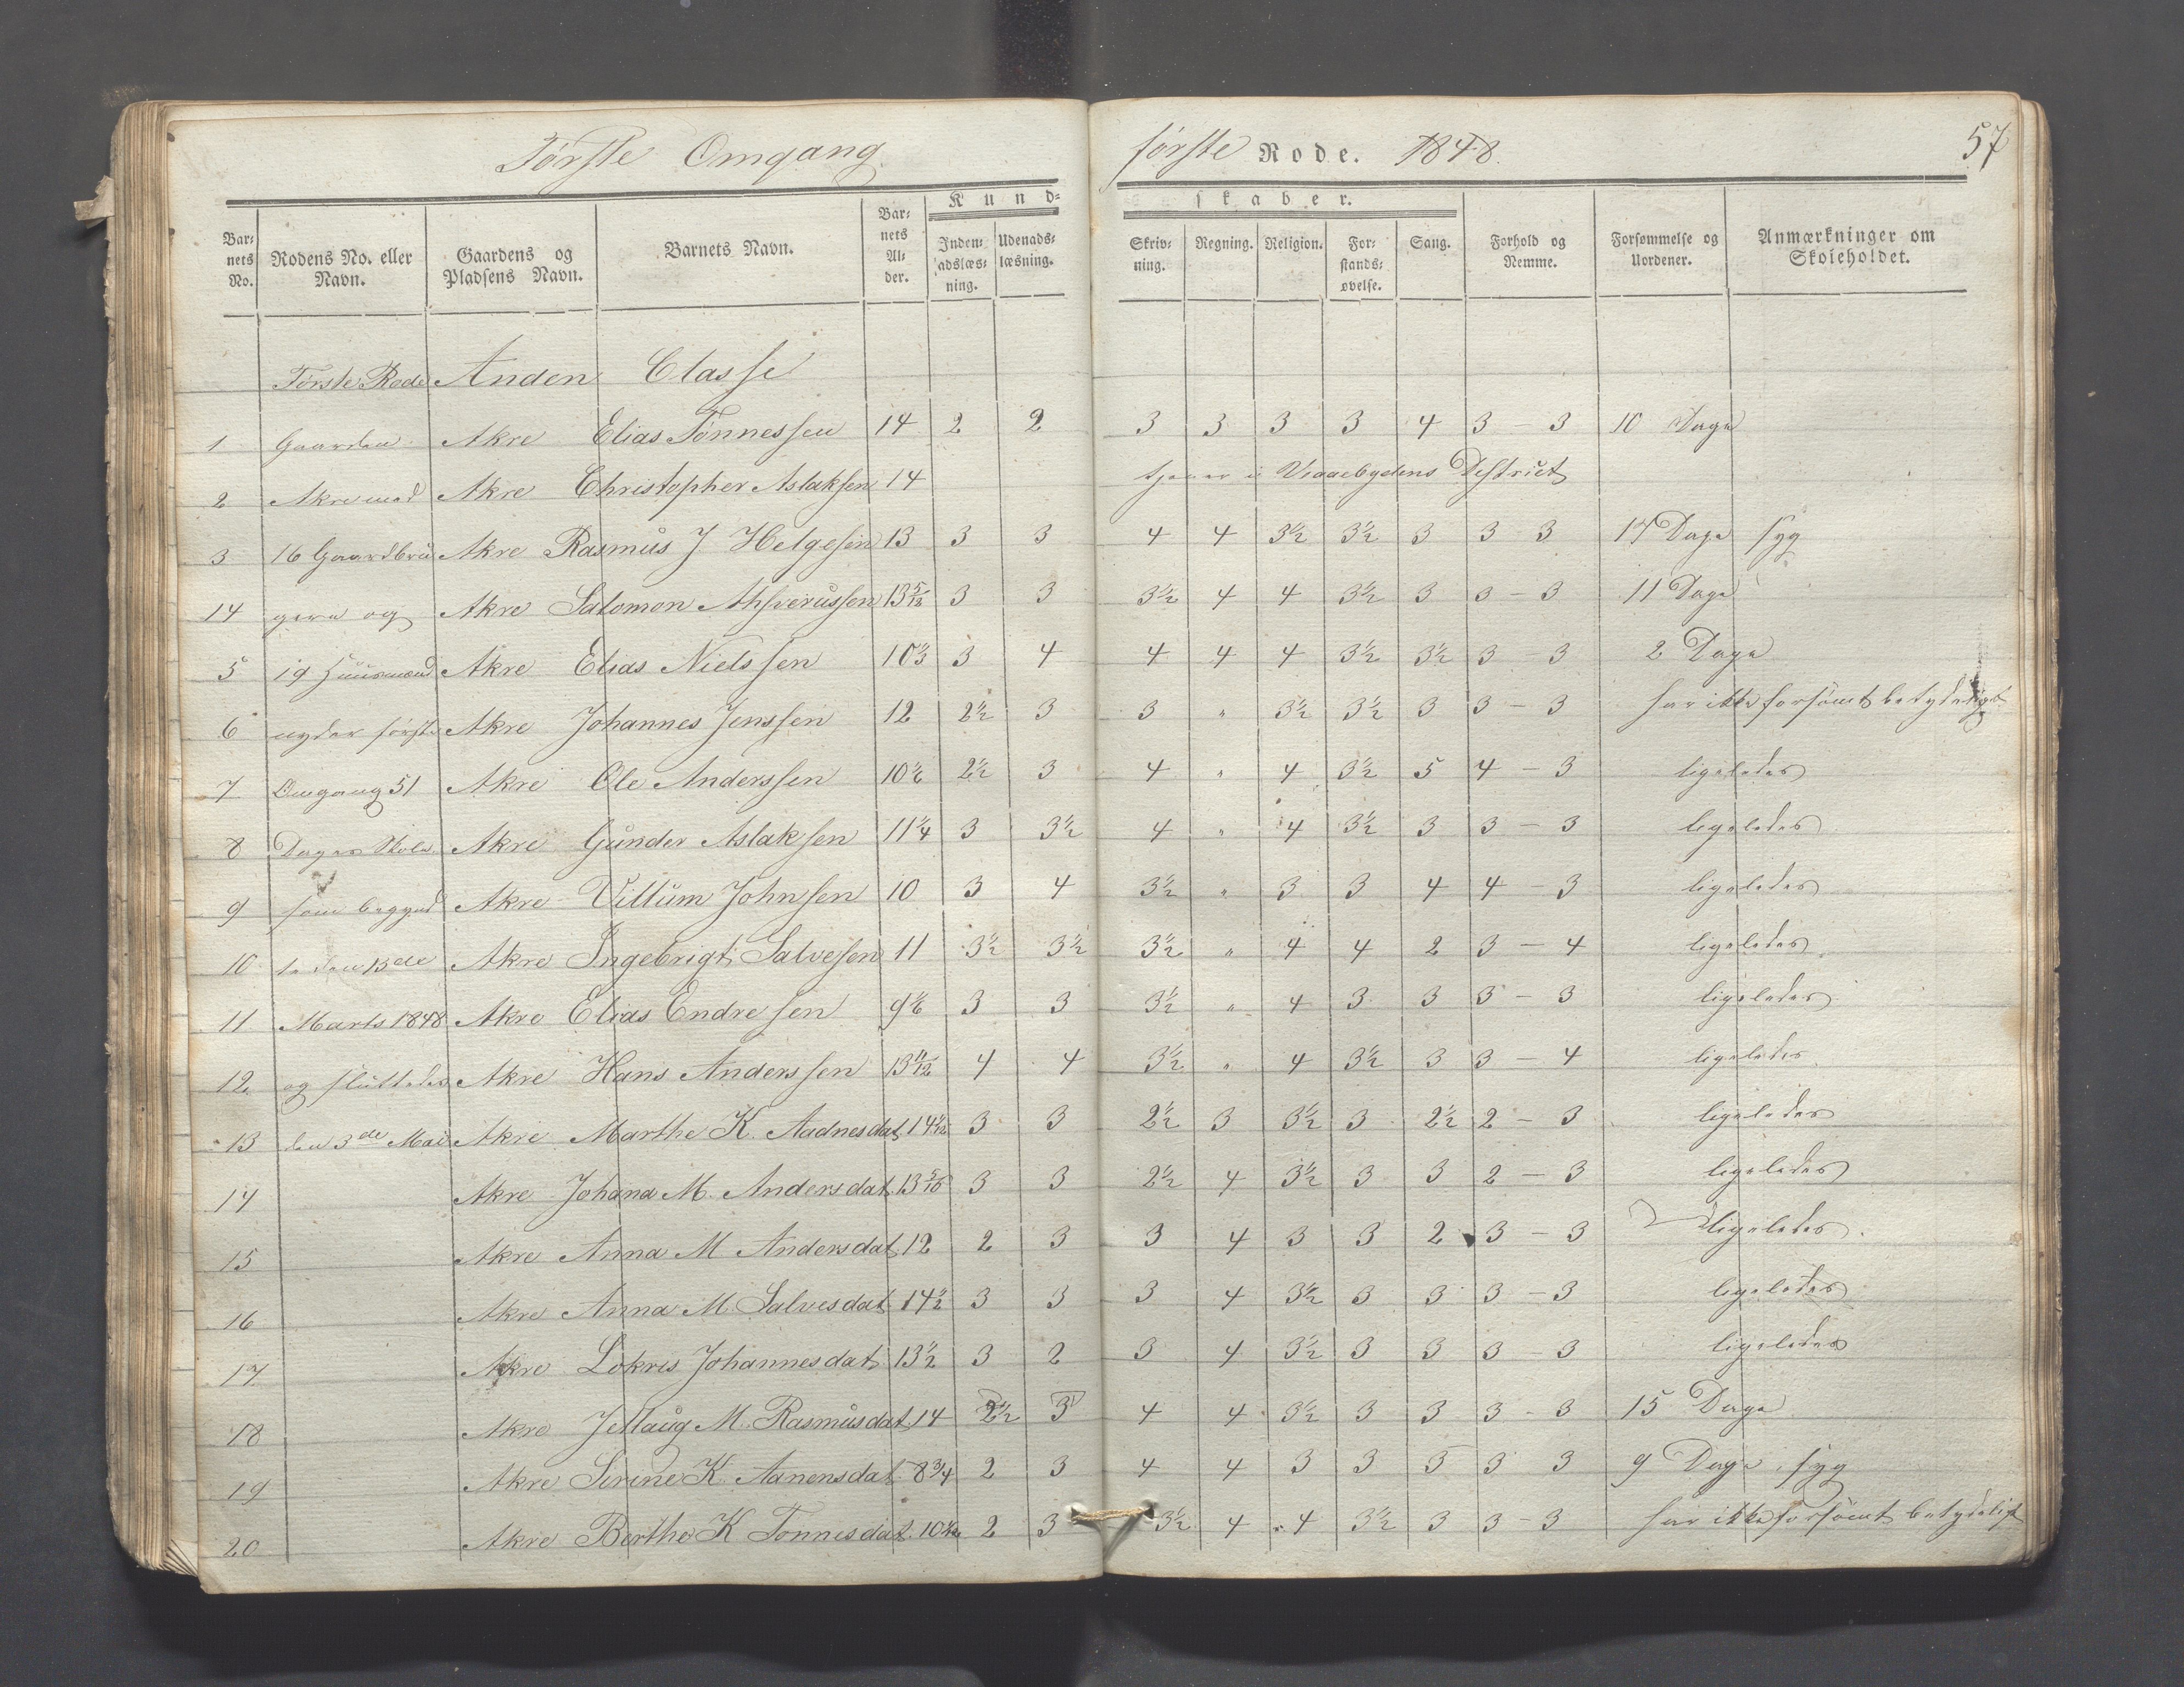 Første Omgang første Rode. 1848. 57
Kundskaber.
Barnets No. Rodens No. eller Navn. Gaardens og Pladsens Navn. Barnets Navn. Barnets Alder. Indenadslæsning. Udenadslæsning. Skrivning. Regning. Religion. Forstandsøvelse. Sang. Forhold og Nemme. Forsømmelse og Uordener. Anmærkninger om Skoleholdet.
Første Rode Anden Classe
1 Gaarden Akre Elias Tønnessen 14 2 2 3 3 3 3 4 3 – 3 10 Dage
2 Akre med Akre Christopher Aslaksen 14 tjener i District
3 16 Gaardbru Akre Rasmus J. Helgesen 13 3 3 4 4 3½ 3½ 3 3 3 17 Dage syg
14 gere og Akre Salomon Ahsverussen 13 5/12 3 3 3½ 4 4 3½ 3 3 – 3 11 Dage
5 19 Huusmænd Akre Elias Nielssen 10⅓ 3 4 4 4 4 3½ 3½ 3 – 3 2 Dage
6 nyder første Akre Johannes Jenssen 12 2½ 3 3 " 3½ 3½ 3 3 – 3 har ikke forsømt betydeligt
7 Omgang 51 Akre Ole Anderssen 10⅙ 2½ 3 4 " 4 3½ 5 4 – 3 ligeledes
8 Dages Skole Akre Gunder Aslaksen 11¼ 3 3½ 4 " 4 3½ 3 3 – 3 ligeledes
9 som begynd Akre Villum Johnsen 10 3 4 3½ " 3 3 4 4 – 3 ligeledes
10 te den 13de Akre Ingebrigt Salvesen 11 3½ 3½ 3½ " 4 4 2 3 – 4 ligeledes
11 Marts 1848 Akre Elias Endresen 9⅙ 3 3 3½ " 4 3 3 3 – 3 ligeledes
12 og sluttedes Akre Hans Anderssen 13 11/12 4 4 3½ " 4 3½ 3 3 – 4 ligeledes
13 den 3de Mai Akre Marthe K. Aadnesdat 14 1/12 3 3 2½ 3 3½ 3 2½ 2 – 3 ligeledes
14 Akre Johana M. Andersdat 13 3 3 2½ 4 3½ 3 3 2 – 3 ligeledes
15 Akre Anna M Andersdat 12 2 3 3 4 3 3 2 3 – 3 ligeledes
16 Akre Anna M. Salvesdat 14½ 3 3 3 4 3½ 3 3 3 – 3 ligeledes
17 Akre Lokris Johannesdat 13½ 3 2 3 4 3½ 3 3 3 – 3 ligeledes
18 Akre Jellaug M. Rasmusdat 14 2½ 3 4 4 3½ 3 3 3 - 3 15 Dage
19 Akre Serine K. Aanensdat 8¾ 2 3 4 4 3 3 5 3 3 9 Dage syg
20 Akre Berthe K Tønnesdat 2 3 3½ 4 4 3½ 3 3 – 3 har ikke forsømt betydeligt